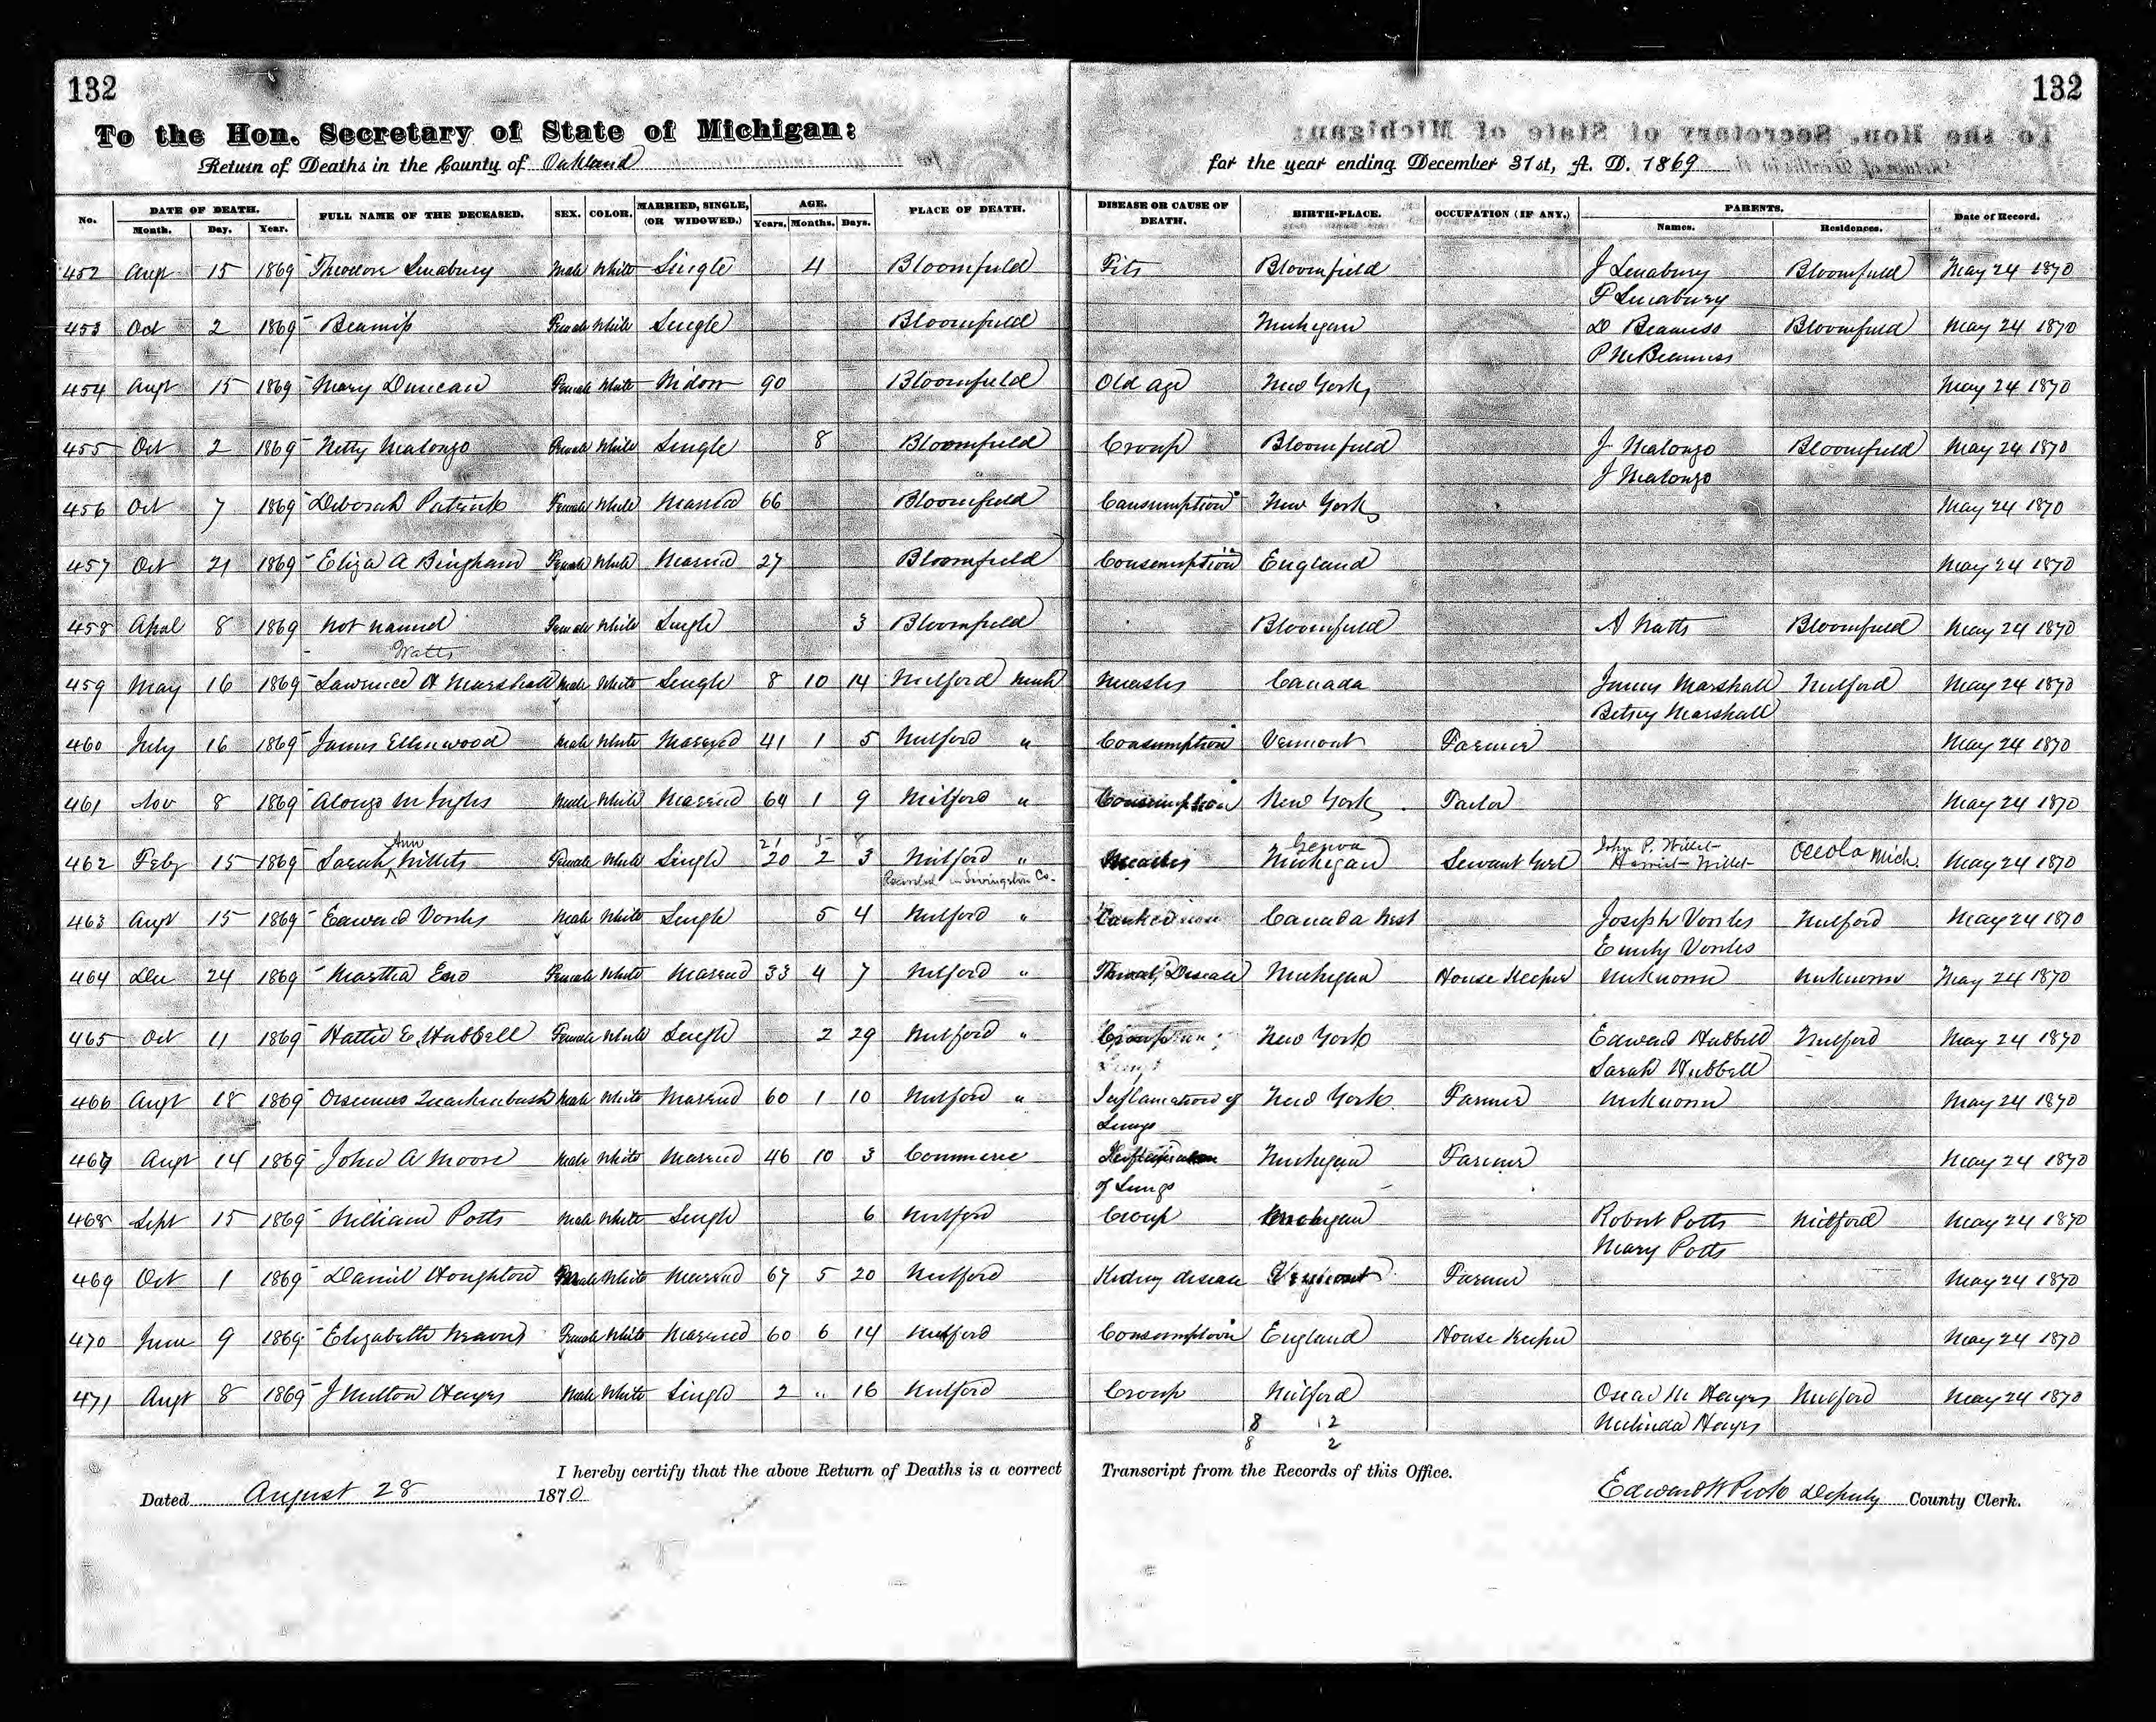 132
132
To the Hon. Secretary of State of Michigan:
Return of Deaths in the County of Oakland
for the year ending December 31st, A. D. 1869
No. DATE OF DEATH. FULL NAME OF THE DECEASED. SEX. COLOR. MARRIED, SINGLE, (OR WIDOWED.) AGE. PLACE OF DEATH. DISEASE OR CAUSE OF DEATH. BIRTH-PLACE. OCCUPATION (IF ANY.) PARENTS. Date of Record.
Month. Day. Year. Years. Months. Days. Names. Residences.
452 Augt 15 1869 Theodore Linabury Male White Single 4 Bloomfield Fits Bloomfield J Linabury Bloomfield May 24 1870
P Linabury
453 Oct 2 1869 Beamiss Female White Single Bloomfield Michigan D Beamiss Bloomfield May 24 1870
P M Beamiss
454 Augt 15 1869 Mary Duncan Female White Widow 90 Bloomfield Old age New York May 24 1870
455 Oct 2 1869 Netty Malonzo Female White Single 8 Bloomfield Croup Bloomfield J Malonzo Bloomfield May 24 1870
J Malonzo
456 Oct 7 1869 Deborah Patrick Female White Married 66 Bloomfield Consumption New York May 24 1870
457 Oct 21 1869 Eliza A Bingham Female White Married 27 Bloomfield Consumption England May 24 1870
458 Apal 8 1869 not named Female White Single 3 Bloomfield Bloomfield A Watts Bloomfield May 24 1870
Watts
459 May 16 1869 Lawrence H Marshall Male White Single 8 10 14 Milford Mich Measles Canada James Marshall Milford May 24 1870
Betsey Marshall
460 July 16 1869 James Ellenwood Male White Married 41 1 5 Milford " Consumption Vermont Farmer May 24 1870
461 Nov 8 1869 Alonzo M Male White Married 64 1 9 Milford " Consumption New York May 24 1870
Ann 21 5 8 Genoa John P. Willet
462 Feby 15 1869 Sarah Willets Female White Single 20 2 3 Milford " Measles Michigan Servant Girl Harriet Willet Oceola Mich. May 24 1870
Recorded in Livingston Co.
463 Augt 15 1869 Edward Vorles Male White Single 5 4 Milford " Canada West Joseph Vorles Milford May 24 1870
Emily Vorles
464 Dec 24 1869 Martha Eno Female White Married 33 4 7 Milford " Throat Disease Michigan House Keeper Unknown Unknown May 24 1870
465 Oct 11 1869 Hattie E Hubbell Female White Single 2 29 Milford " Croup New York Edward Hubbell Milford May 24 1870
Sarah Hubbell
466 Augt 18 1869 Orsemus Quackenbush Male White Married 60 1 10 Milford " Inflamation of New York Farmer Unknown May 24 1870
Lungs
467 Augt 14 1869 John A Moore Male White Married 46 10 3 Commerce Michigan Farmer May 24 1870
of Lungs
468 Sept 15 1869 William Potts Male White Single 6 Milford Croup Michigan Robert Potts Milford May 24 1870
Mary Potts
469 Oct 1 1869 Daniel Houghton Male White Married 67 5 20 Milford Kidney disease Vermont Farmer May 24 1870
470 June 9 1869 Elizabeth Female White Married 60 6 14 Milford Consumption England House Keeper May 24 1870
471 Augt 8 1869 J Milton Hayes Male White Single 2 " 16 Milford Croup Milford Oscar M Hayes Milford May 24 1870
8 12 Melinda Hayes
8 2
I hereby certify that the above Return of Deaths is a correct Transcript from the Records of this Office.
Dated August 28 1870
Edward W Peck Deputy County Clerk.